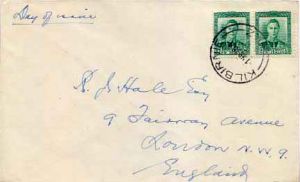 Day of issue
KILBIRN
R. J. Hale Esq
9 Fairway Avenue
London N.W.9.
England